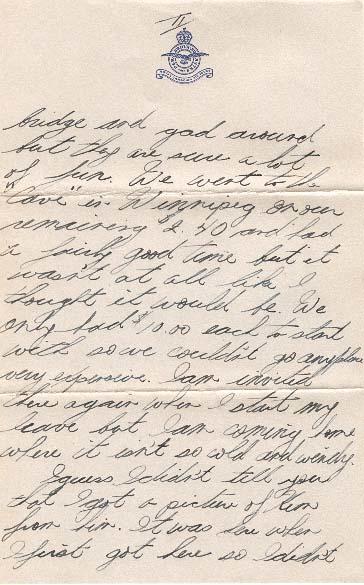 II
bridge and gad around
but they are sure a lot
of fun. We went to the
"Cave" in Winnipeg on our
remaining $2.40 and had
a fairly good time but it
wasn't at all like I
thought it would be. We
only had $10.00 each to start
with so we couldn't go anyplace
very expensive. I am invited
there again when I start my
leave but I am coming home
where it isn't so cold and windy
I guess I didn't tell you
that I got a picture of Ken
from him. It was here when
I first got here so I didn't